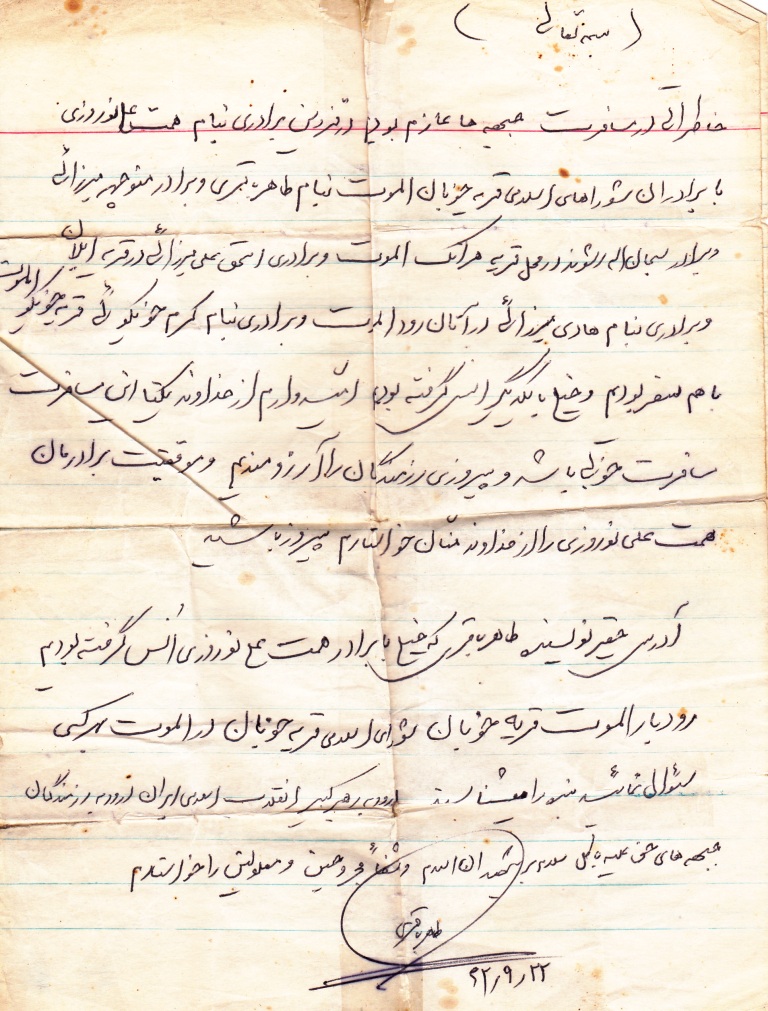 (بسمه تعالی)
خاطراتی از مسافرت جبهه ها عازم بودیم در قزوین برادری بنام همت علی نوروزی
با برادران شوراهای اسلامی قریه خوبان الموت بنام طاهر باقری و برادر منوچهر میرزائی
و برادر سبحان اله در محل قریه هرانک الموت و برادری اسحق علی میرزائی در قریه ایلان
و برادری بنام هادی میرزائی در آتان رود الموت و برادری بنام کرم خونیکوئی قریه خونیکو الموت
با هم سفر بودیم و خیلی با یکدیگر انس گرفته بودیم امید وارم از خداوند یکتا این مسافرت
مسافرت خوبی باشد و پیروزی رزمندگان را آرزومندیم و موفقیت برادرمان
همت علی نوروزی را از خداوند منّان خواستارم پیروز باشید
آدرس حقیر نویسنده طاهر باقری که خیلی با برادر همت علی نوروزی اُنس گرفته بودیم
رودبار الموت قریه خوبان شورای اسلامی قریه خوبان در الموت بهر کسی
سئوال نمائید بنده را میشناسند درود به رهبر کبیر انقلاب اسلامی ایران درود به رزمندگان
جبهه های حق علیه باطل سلام بر شهیدان اسلام و شفاء مجروحین و معلولین را خواستارم
طاهر باقری
۶۲/۹/۲۲